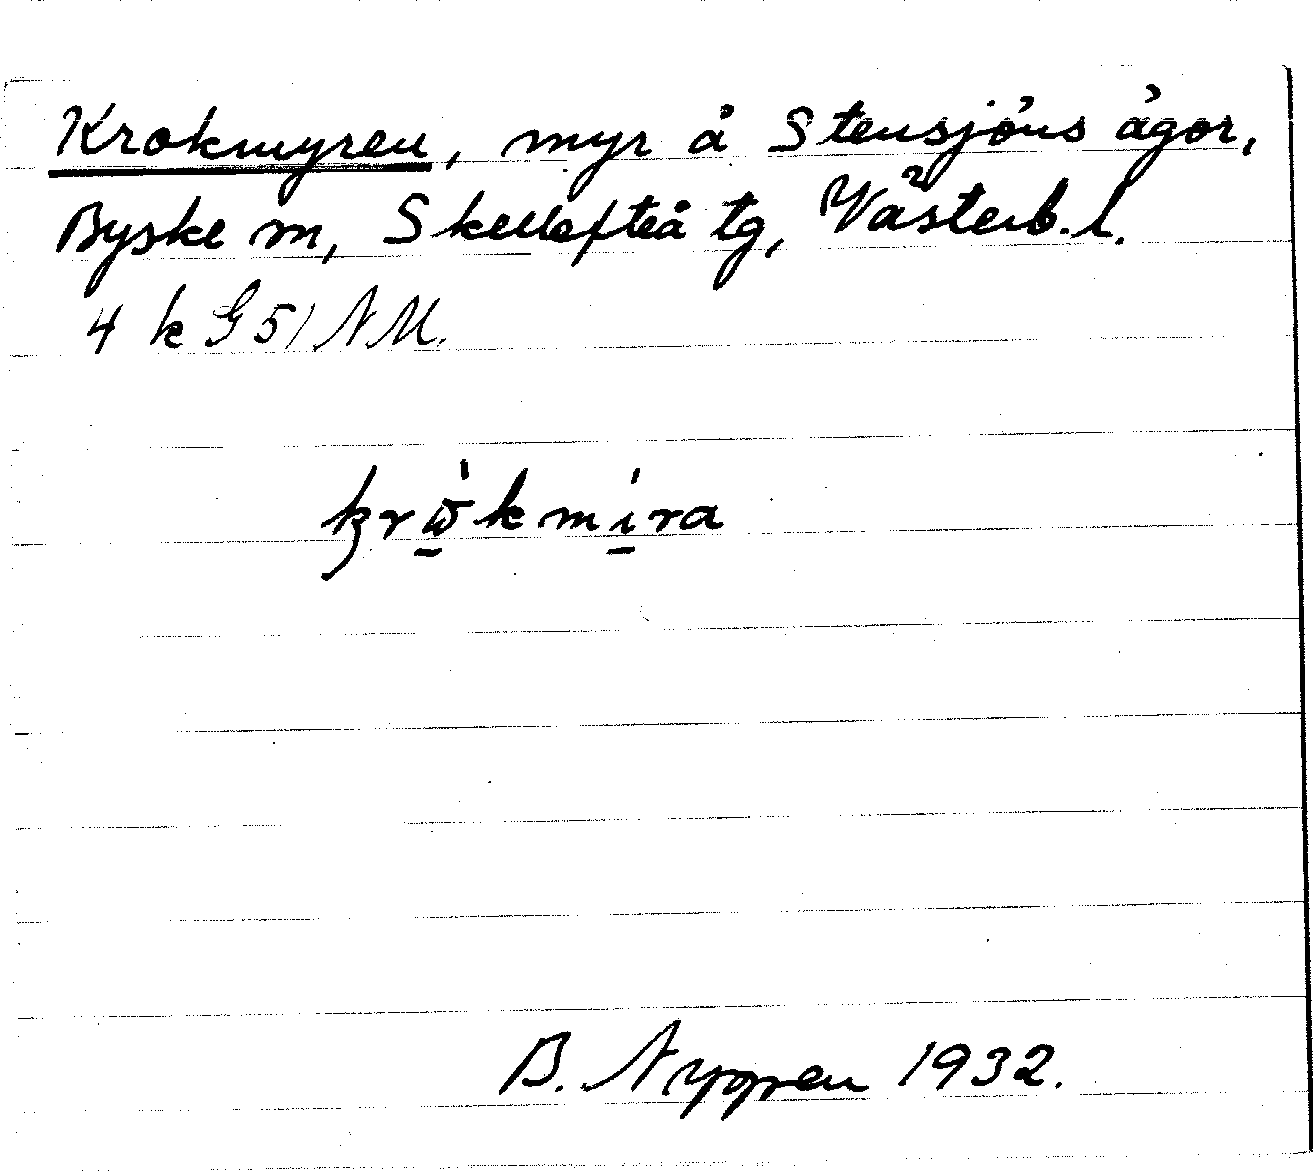 Krokmyren, myr å Stensjöns ägor,
Byske sn, Skellefteå tg, Västerb. l.
4 k G 5) NM.
krὼkmìra
B. Nygren 1932.